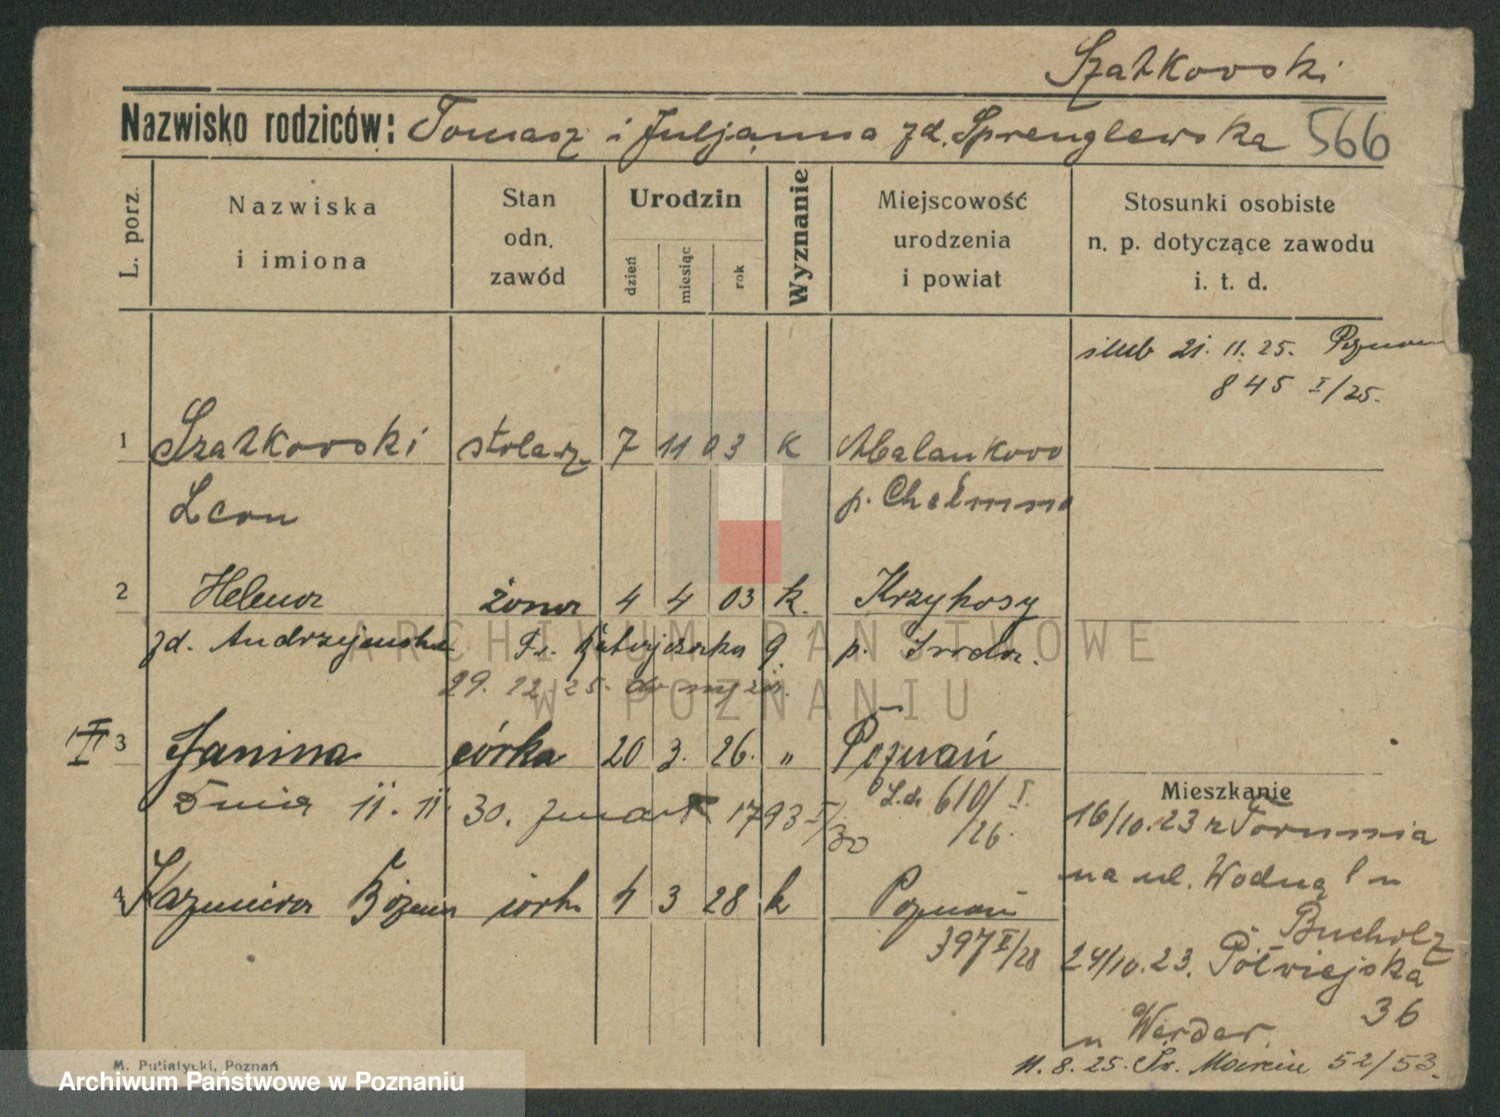 Szatkowski
Nazwisko rodziców: Tomasz i Juljanna zd. Sprenglewska 566
L. porz.
Nazwiska i imiona
Stan odn. zawód
Urodzin
dzień
miesiąc
rok
Wyznanie
Miejscowość urodzenia i powiat
Stosunki osobiste n. p. dotyczące zawodu i. t. d.
ślub 21. 11. 25. Poznań
845 I/25.
1 Szatkowski stolarz 7 11 03 K Malankowo
Leon p. Chełmno
2 Helena żona 4 4 03 k. Krzykosy
zd. Andrzejewska p. Środa.
29. 12. 25. do męża.
III 3 Janina córka 20 3. 26. " Poznań
L.ch 610/I.
/26.
Dnia 11. 11. 30. zmarła 1793 I/30
Mieszkanie
16/10. 23 z Torunia
na ul. Wodną 1 u
Bucholz
4 Kazimiera Bożena córka 4 3 28 k Poznań
397 I/28
24/10. 23. Półwiejska
36
u Werder.
11. 8. 25. Św. Marcin 52/53.
M. Putiatycki, Poznań
ARCHIWUM PAŃSTWOWE
W POZNANIU
Archiwum Państwowe w Poznaniu